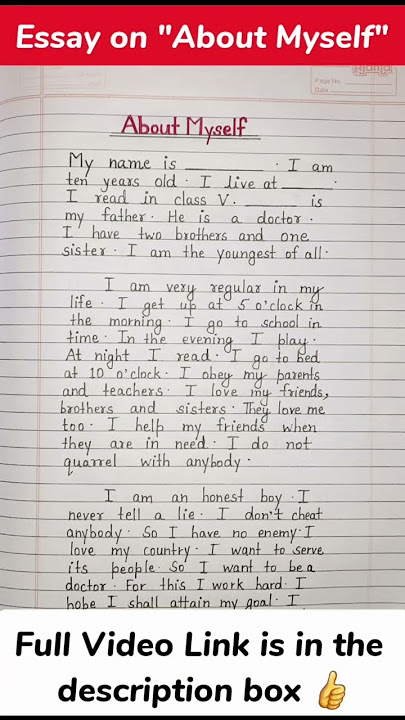 Essay on "About Myself"
Page No.
Date
About Myself
My name is ________ . I am
ten years old . I live at ______ .
I read in class V . ______ is
my father . He is a doctor .
I have two brothers and one
sister . I am the youngest of all .
I am very regular in my
life . I get up at 5 o'clock in
the morning . I go to school in
time . In the evening I play .
At night I read . I go to bed
at 10 o'clock . I obey my parents
and teachers . I love my friends,
brothers and sisters . They love me
too . I help my friends when
they are in need . I do not
quarrel with anybody .
I am an honest boy . I
never tell a lie . I don't cheat
anybody . So I have no enemy . I
love my country . I want to serve
its people . So I want to be a
doctor . For this I work hard . I
hope I shall attain my goal . I
Full Video Link is in the
description box 👍